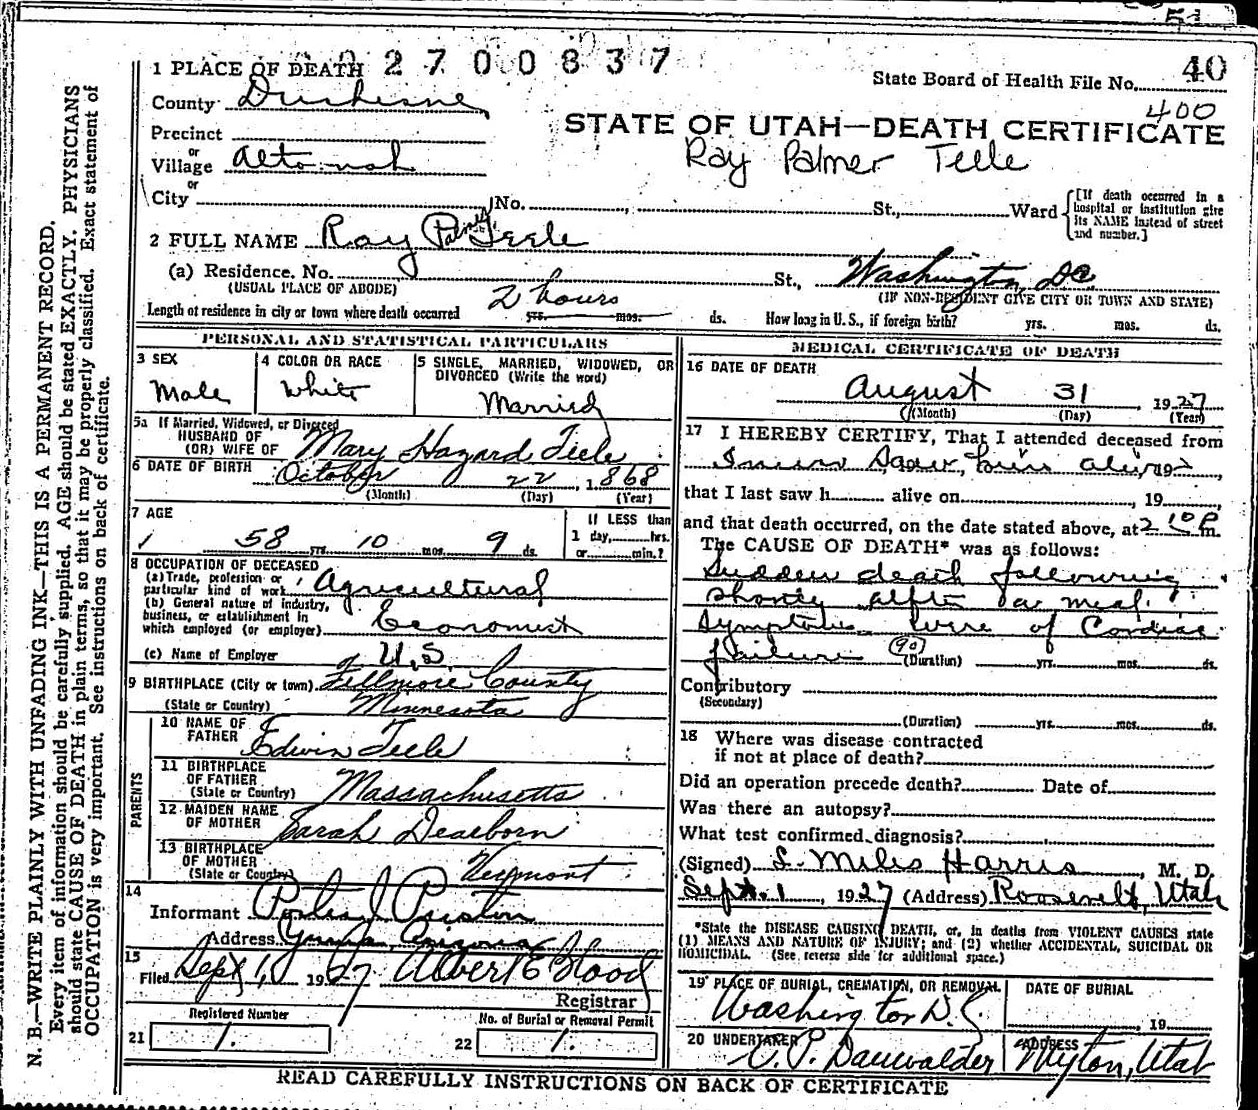 51
1 PLACE OF DEATH 0 2 7 0 0 8 3 7
State Board of Health File No. 40
400
County Duchesne
STATE OF UTAH—DEATH CERTIFICATE
Ray Palmer Teele
Precinct
or
Village Altonah
or
City No. St., Ward
[If death occurred in a
hospital or institution give
its NAME instead of street
and number.]
2 FULL NAME Ray Palmer Teele
(a) Residence. No. St., Washington, DC.
(USUAL PLACE OF ABODE) (IF NON-RESIDENT GIVE CITY OR TOWN AND STATE)
Length of residence in city or town where death occurred 2 hours yrs. mos. ds. How long in U. S., if foreign birth? yrs. mos. ds.
PERSONAL AND STATISTICAL PARTICULARS
3 SEX
Male
4 COLOR OR RACE
White
5 SINGLE, MARRIED, WIDOWED, OR
DIVORCED (Write the word)
Married
5a If Married, Widowed, or Divorced
HUSBAND OF
(OR) WIFE OF Mary Hazard Teele
6 DATE OF BIRTH October 22, 1868
(Month) (Day) (Year)
7 AGE
58 yrs. 10 mos. 9 ds.
If LESS than
1 day, hrs.
or min.?
8 OCCUPATION OF DECEASED
(a) Trade, profession or
particular kind of work Agricultural
(b) General nature of industry,
business, or establishment in
which employed (or employer) Economist
(c) Name of Employer U.S.
9 BIRTHPLACE (City or town) Fillmore County
(State or Country) Minnesota
PARENTS
10 NAME OF
FATHER Edwin Teele
11 BIRTHPLACE
OF FATHER
(State or Country) Massachusetts
12 MAIDEN NAME
OF MOTHER Sarah Dearborn
13 BIRTHPLACE
OF MOTHER
(State or Country) Vermont
14
Informant Porter J Preston
Address Yuma, Arizona
15
Filed Sept 1, 1927 Albert E Blood
Registrar
Registered Number
21 1.
No. of Burial or Removal Permit
22 1.
MEDICAL CERTIFICATE OF DEATH
16 DATE OF DEATH
August 31, 1927
(Month) (Day) (Year)
17 I HEREBY CERTIFY, That I attended deceased from
I never saw him alive, 19
that I last saw h alive on, 19
and that death occurred, on the date stated above, at 2 10 P m.
The CAUSE OF DEATH* was as follows:
Sudden death following
shortly after a meal.
Symptoms were of Cardiac
failure 90 (Duration) yrs. mos. ds.
Contributory
(Secondary)
(Duration) yrs. mos. ds.
18 Where was disease contracted
if not at place of death?
Did an operation precede death? Date of
Was there an autopsy?
What test confirmed diagnosis?
(Signed) L. Miles Harris, M. D.
Sept. 1, 1927 (Address) Roosevelt, Utah
*State the DISEASE CAUSING DEATH, or, in deaths from VIOLENT CAUSES state
(1) MEANS AND NATURE OF INJURY; and (2) whether ACCIDENTAL, SUICIDAL OR
HOMICIDAL. (See reverse side for additional space.)
19 PLACE OF BURIAL, CREMATION, OR REMOVAL
Washington D.C.
DATE OF BURIAL
, 19
20 UNDERTAKER
C. P. Dauwalder
ADDRESS
Myton, Utah
READ CAREFULLY INSTRUCTIONS ON BACK OF CERTIFICATE
N. B.—WRITE PLAINLY WITH UNFADING INK—THIS IS A PERMANENT RECORD.
Every item of information should be carefully supplied. AGE should be stated EXACTLY. PHYSICIANS
should state CAUSE OF DEATH in plain terms, so that it may be properly classified. Exact statement of
OCCUPATION is very important. See instructions on back of certificate.